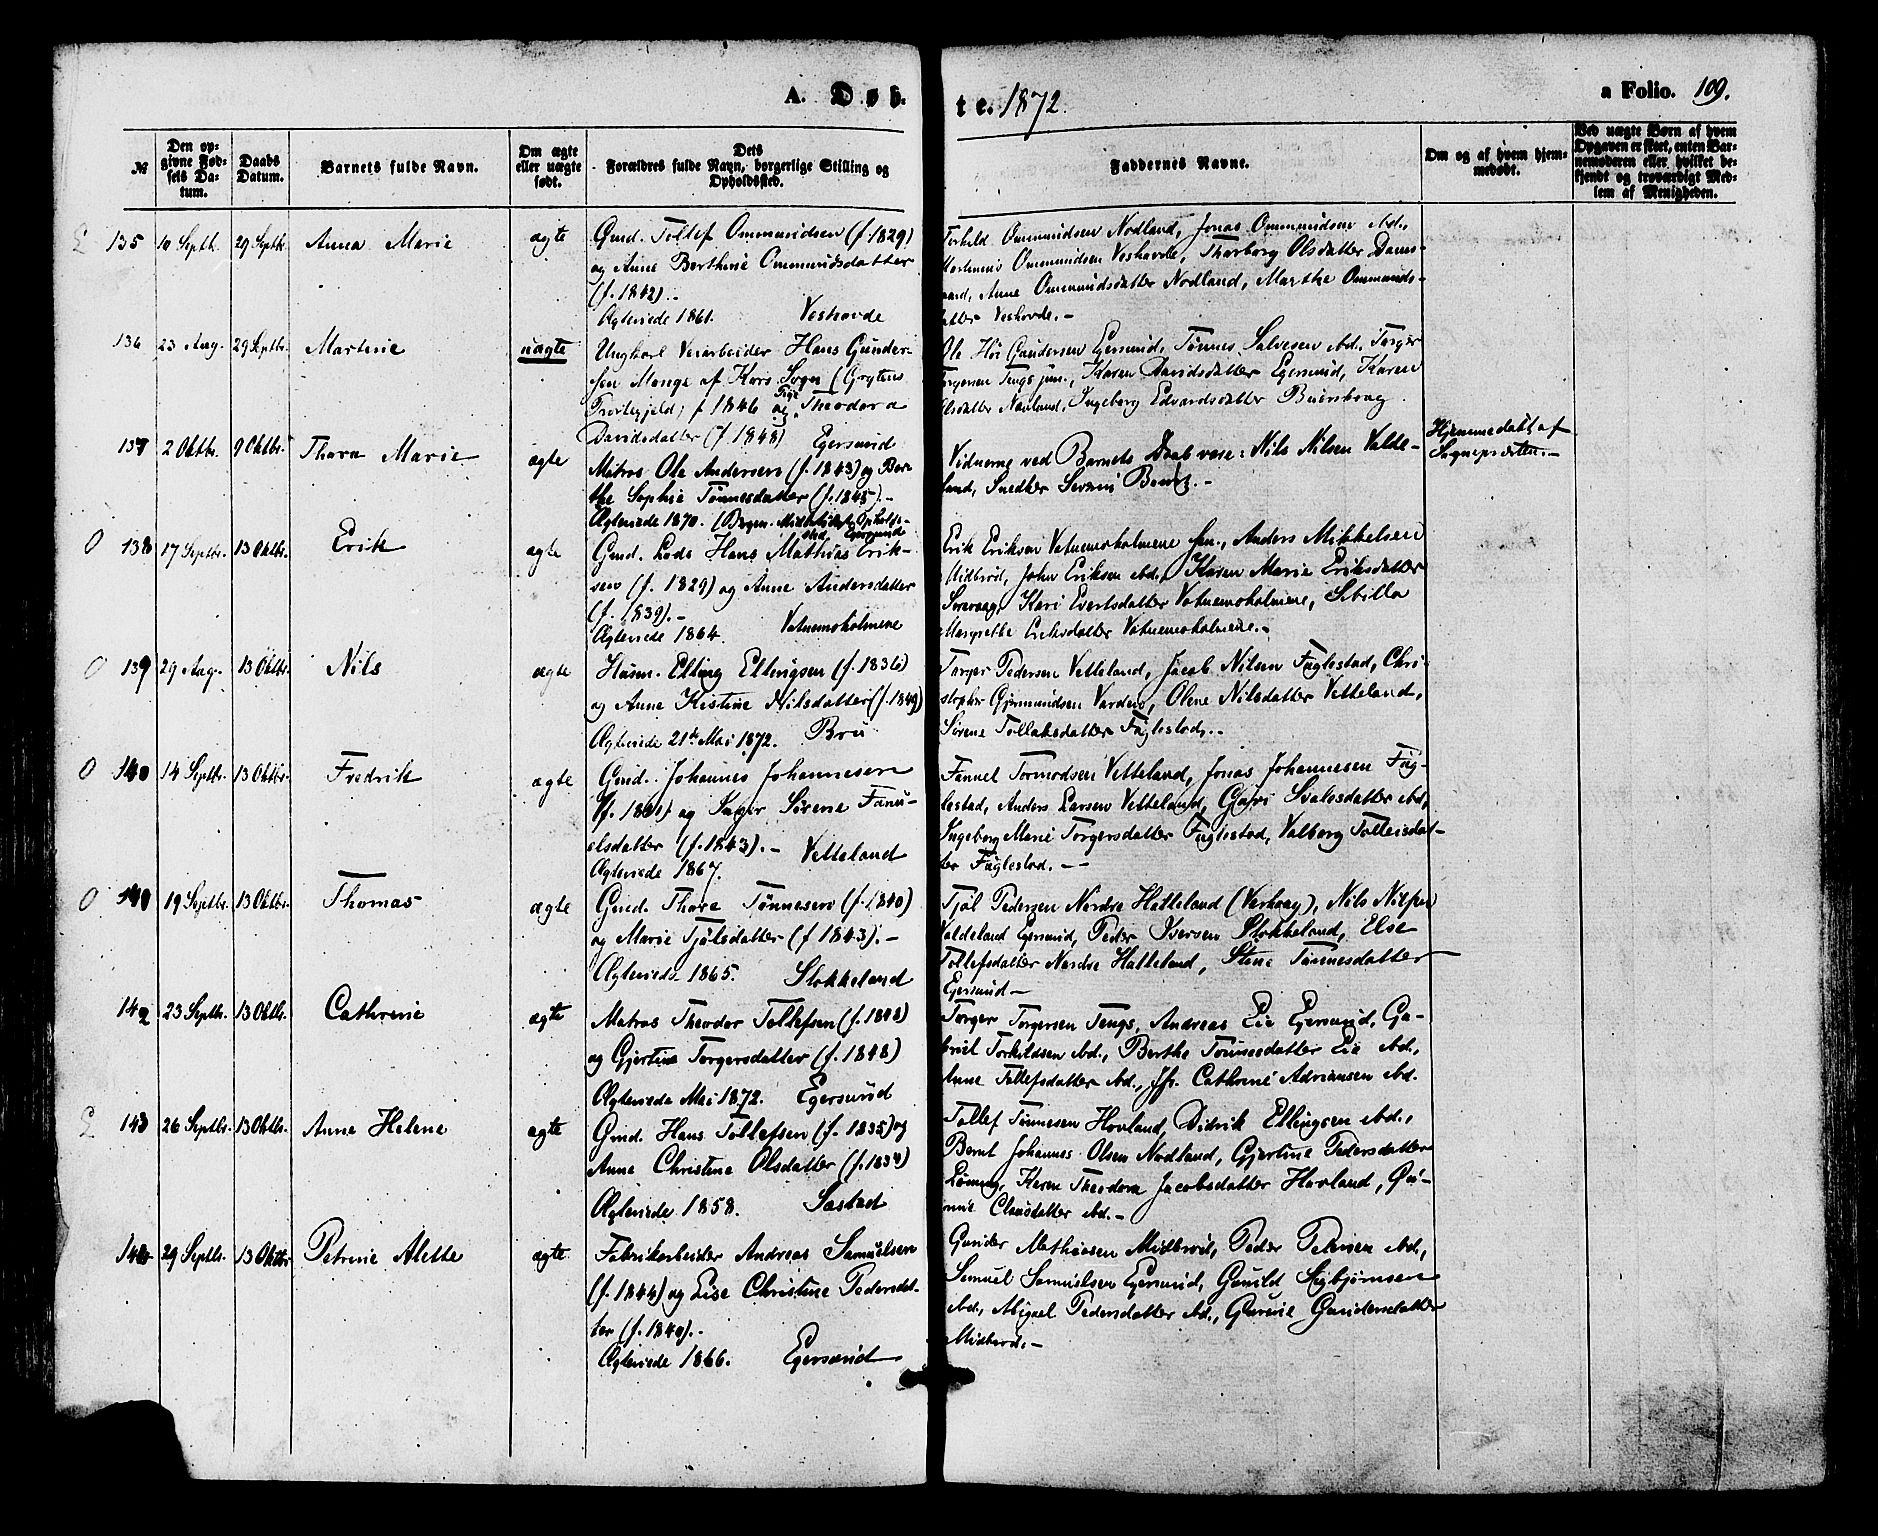 A. Døb.
te. 1872.
a Folio. 109.
№
Den op-
givne Fød-
sels Da-
tum.
Daabs
Datum.
Barnets fulde Navn.
Om ægte
eller uægte
født.
Dets
Forældres fulde Navn, borgerlige Stilling og
Opholdssted.
Faddernes Navne.
Om og af hvem hjem-
medøbt.
Ved uægte Børn af hvem
Opgaven er skeet, enten Bar-
nemoderen eller hvilket be-
kjendt og troværdigt Med-
lem af Menigheden.
135 10 Septb. 29 Septbr. Anna Marie ægte
Gmd. Tollef Ommundsen (f. 1829)
og Anne Berthine Ommundsdatter
(f. 1842).-
Ægteviede 1861. Veshovde
Torkild Ommundsen Nodland, Jonas Ommundsen ibd.,
Martinius Ommundsen Veshovde, Thorborg Olsdatter Dams-
gaard, Anne Ommundsdatter Nodland, Marthe Ommunds-
datter Veshovde.-
136 23 Aug. 29 Septbr. Martine uægte
Ungkarl Veiarbeider Hans Gunder-
sen Monge af Kors Sogn (Grytens
Præstegjeld) f 1846 og Pige Theodora
Davidsdatter (f. 1848) Egersund
Ole Høi Gundersen Egersund, Tønnes Salvesen ibd., Torger
Torgersen Tengs jun., Karen Davidsdatter Egersund, Karen
Olsdatter Nevland, Ingeborg Edvardsdatter
137 2 Oktbr. 9 Oktbr. Thora Marie ægte
Matros Ole Andersen (f. 1843) og Ber-
the Sophie Tønnesdatter (f. 1845).-
Ægteviede 1870. (Bergen. Midlertidigt Opholds-
sted Egersund
Vidnerne ved Barnets Daab vare: Nils Nilsen Valde-
land, Snedker Severin
Hjemmedøbt af
Sognepræsten.-
138 17 Septbr. 13 Oktbr. Erik ægte
Gmd. Lods Hans Mathias Erik-
sen (f. 1829) og Anne Andersdatter
(f. 1839).-
Ægteviede 1864. Vatnemoholmene
Erik Eriksen Vatnemoholmene sen., Anders Mikkelsen
Midbrød, John Eriksen ibd., Karen Marie Eriksdatter
Svaavaag, Kari Evertsdatter Vatnemoholmene, Sibilla
Margrethe Eriksdatter Vatnemoholmene.-
139 29 Aug. 13 Oktbr. Nils ægte
Husm. Elling Ellingsen (f. 1836)
og Anne Kistine Nilsdatter (f. 1849)
Ægteviede 21de Mai 1872. Bru
Torger Pedersen Vetteland, Jacob Nilsen Fuglestad, Chri-
stopher Gjermundsen Varden, Olene Nilsdatter Vetteland,
Sørene Tollaksdatter Fuglestad.-
140 14 Septbr. 13 Oktbr. Fredrik ægte
Gmd. Johannes Johannesen
(f. 1841) og Inger Sørene Fanu-
elsdatter (f. 1843).- Vetteland
Ægteviede 1867.
Fanuel Tormodsen Vetteland, Jonas Johannesen Fug-
lestad, Anders Larsen Vetteland, Guri Svalesdatter ibd,
Ingeborg Marie Torgersdatter Fuglestad, Valborg Tolleisdat-
ter Fuglestad.--
141 19 Septbr. 13 Oktbr. Thomas ægte
Gmd. Thore Tønnesen (f. 1840)
og Marie Tjølsdatter (f 1843).-
Ægteviede 1865. Slokkeland
Tjøl Pedersen Nordre Hatteland (Verhaug), Nils Nilsen
Valdeland Egersund, Peder Iversen Slokkeland, Else
Tollefsdatter Nordre Halleland, Stine Tønnesdatter
Egersund-
142 23 Septbr. 13 Oktbr. Cathrine ægte
Matros Theodor Tollefsen (f. 1848)
og Gjertine Torgersdatter (f. 1848)
Ægteviede Mai 1872. Egersund
Torger Torgersen Tengs, Andreas Eie Egersund, Ga-
briel Torkildsen ibd., Berthe Tønnesdatter Eie ibd.,
Anne Tollefsdatter ibd., Jfr. Cathrine Adriansen ibd.
143 26 Septbr. 13 Oktbr. Anne Helene ægte
Gmd. Hans Tollefsen (f. 1835) og
Anne Christine Olsdatter (f. 1834)
Ægteviede 1858. Sæstad
Tollef Tønnesen Hovland, Didrik Ellingsen ibd.,
Bernt Johannes Olsen Nodland, Gjertine Pedersdatter
Løining, Karen Theodora Jacobsdatter Hovland, Gu-
nnie Clausdatter ibd.-
144 29 Septbr. 13 Oktbr. Petrine Alette ægte
Fabrikarbeider Andreas Samuelsen
(f. 1844) og Lise Christine Pedersdat-
ter (f. 1840).-
Ægteviede 1866. Egersund
Gunder Mathiasen Midbrød, Peder Petersen ibd.,
Samuel Samuelsen Egersund, Gunild Sigbjørnsen
ibd., Abigael Pedersdatter ibd., Gurine Gundersdatter
Midbrød.-